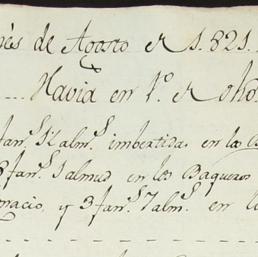 de Agosto de 1.821.
Havia en 1º. de
fan.s 12 alm.s imbertidas en los
fan.s 1 almud en los Baqueros
nacio, y 3 fan.s 7 alm.s en